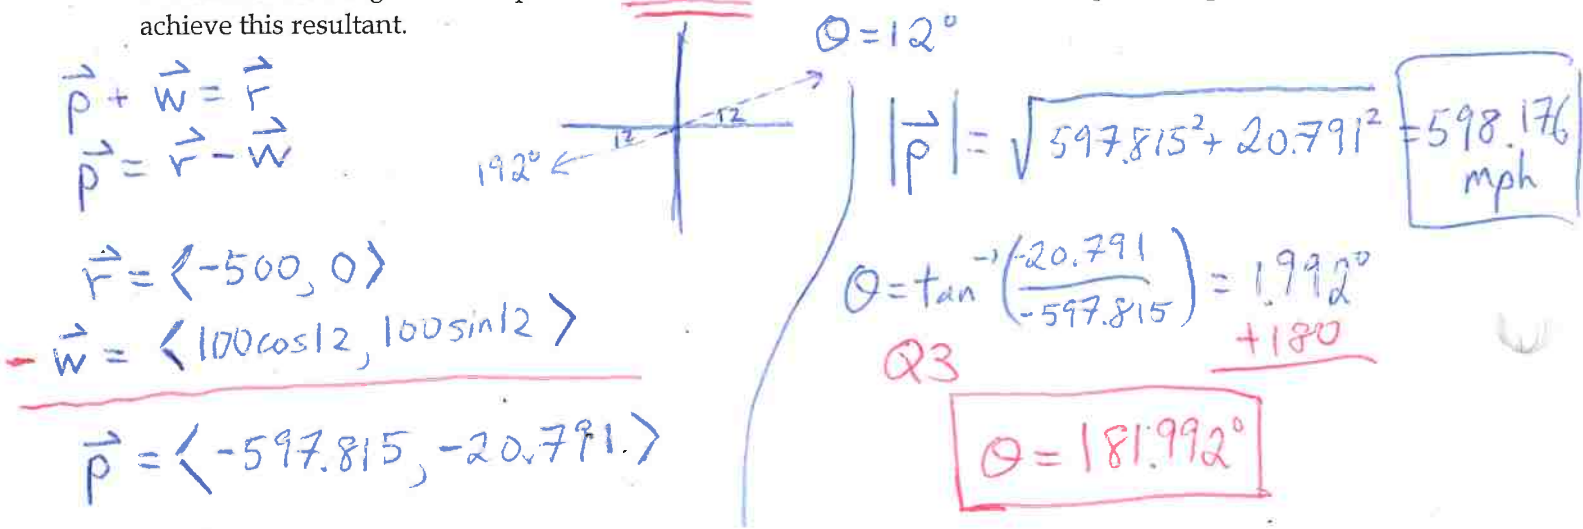 achieve this resultant.
θ = 12°
p⃗ + w⃗ = r⃗
p⃗ = r⃗ − w⃗
12
12
192°
r⃗ = ⟨-500, 0⟩
− w⃗ = ⟨100cos12, 100sin12⟩
p⃗ = ⟨-597.815, -20.791.⟩
|p⃗| = √597.815² + 20.791² = 598.176
mph
θ = tan⁻¹(-20.791 / -597.815) = 1.992°
+180
Q3
θ = 181.992°